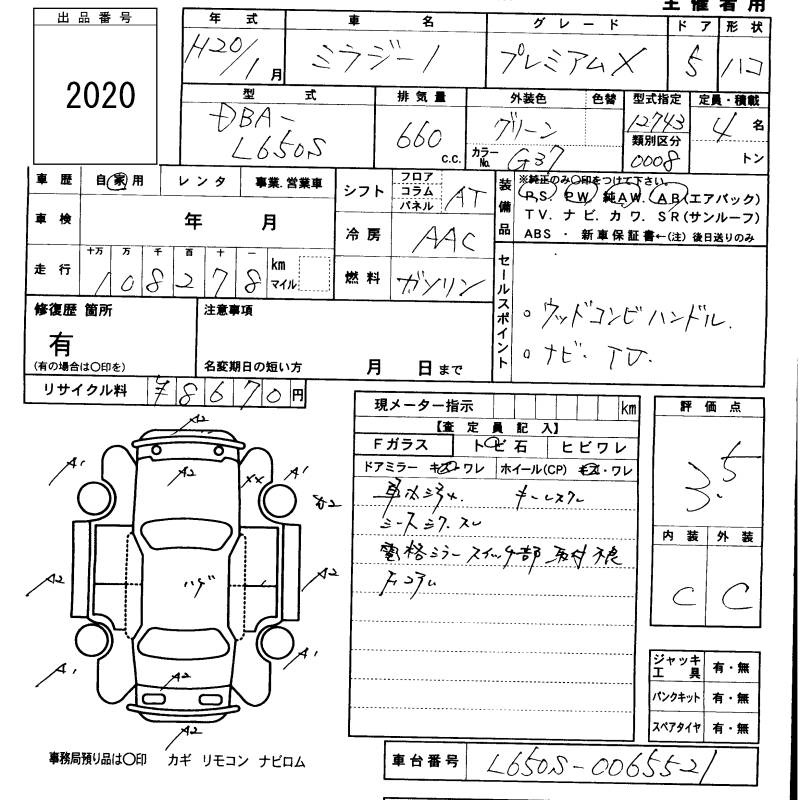 主催者用
出品番号
2020
年式 車名 グレード ドア 形状
H20/1月 ミラジーノ プレミアムX 5 ハコ
型式 排気量 外装色 色替 型式指定 定員・積載
DBA-L650S 660 C.C. グリーン 12743 4名
カラーNo. G37 類別区分 0008 トン
車歴 自家用 レンタ 事業.営業車
車検 年 月
走行 十万 万 千 百 十 km マイル
108278
シフト フロア コラム パネル AT
冷房 AAC
燃料 ガソリン
装備品 ※純正のみ〇印をつけて下さい。
P.S. P.W. 純A.W. A.B(エアバック)
T V. ナ ビ. カ ワ. S R(サンルーフ)
ABS ・ 新車保証書←(注) 後日送りのみ
セールスポイント
○ ウッドコンビハンドル.
○ ナビ. TV.
修復歴 箇所
有
(有の場合は〇印を)
注意事項
名変期日の短い方 月 日まで
リサイクル料 ¥8670円
現メーター指示 km
【査定員記入】
Fガラス トビ石 ヒビワレ
ドアミラー キズ・ワレ ホイール(CP) キズ・ワレ
キーレスクレ
シートシワ.スレ
電格ミラースイッチ部 取付不良
評価点
3.5
内装 外装
C C
A2
A1 A2 XX A1
A2
A2 ハゲ A2
A1 A2 A1
A2
ジャッキ工具 有・無
パンクキット 有・無
スペアタイヤ 有・無
事務局預り品は〇印 カギ リモコン ナビロム
車台番号 L650S-0065521